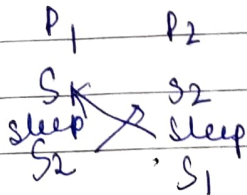 P1 P2
S1 S2
sleep sleep
S2 S1